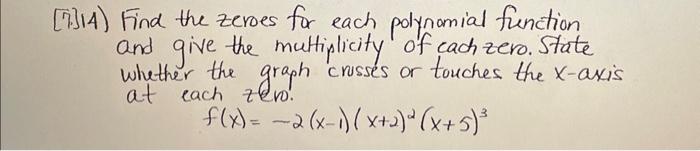 [7.]14) Find the zeroes for each polynomial function
and give the multiplicity of each zero. State
whether the graph crosses or touches the x-axis
at each zero.
f(x) = -2(x-1)(x+2)²(x+5)³